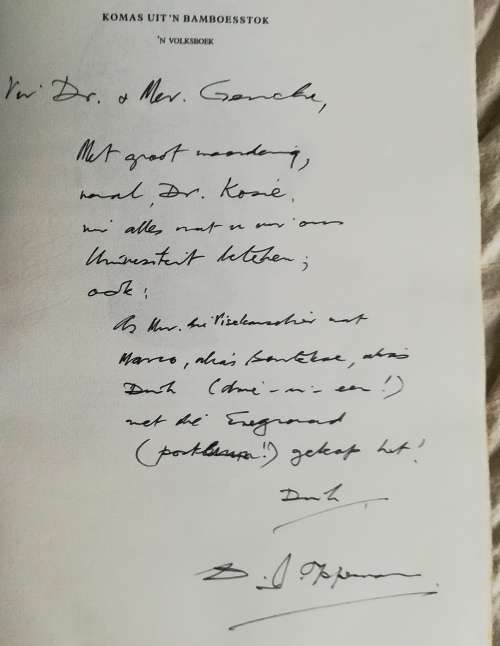 KOMAS UIT 'N BAMBOESSTOK
'N VOLKSBOEK
Vir Dr. & Mev. Gericke,
Met groot waardering,
veral, Dr. Kosie,
vir alles wat u vir ons
Universiteit beteken;
ook:
As Mnr. die Visekanselier wat
Marco, alias, alias
Dirk (drie-in-een!)
met die Eregraad
(post!!) gekap het!
Dirk
D. J. Opperman.